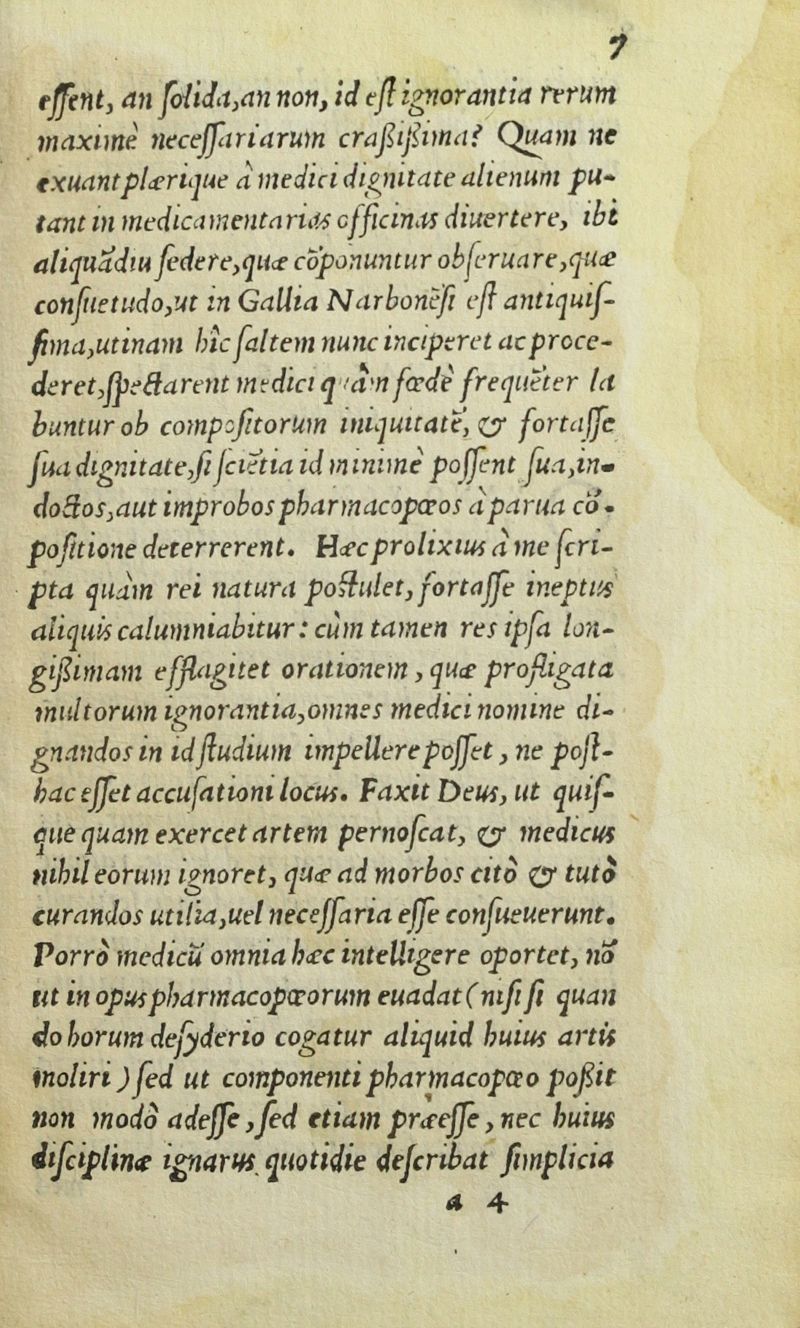 7
essent, an solida,an non, id est ignorantia rerum
maximè necessariarum craßißima? Quam ne
exuant plærique à medici dignitate alienum pu-
tant in medicamentarias officinas diuertere, ibi
aliquãdiu sedere,quæ cõponuntur obseruare,quæ
consuetudo,ut in Gallia Narbonẽsi est antiquis-
sima,utinam hîc saltem nunc inciperet ac proce-
deret,spectarent medici quàm fœdè frequẽter la
buntur ob compositorum iniquitatẽ, & fortasse
sua dignitate,si sciẽtia id minimè possent sua,in-
doctos,aut improbos pharmacopœos à parua cõ-
positione deterrerent. Hæc prolixius à me scri-
pta quàm rei natura postulet, fortasse ineptus
aliquis calumniabitur: cùm tamen res ipsa lon-
gißimam efflagitet orationem, quæ profligata
multorum ignorantia,omnes medici nomine di-
gnandos in id studium impellere posset, ne post-
hac esset accusationi locus. Faxit Deus, ut quis-
que quam exercet artem pernoscat, & medicus
nihil eorum ignoret, quæ ad morbos citò & tutò
curandos utilia,uel necessaria esse consueuerunt.
Porrò medicũ omnia hæc intelligere oportet, nõ
ut in opus pharmacopœorum euadat (nisi si quan
do horum desyderio cogatur aliquid huius artis
moliri) sed ut componenti pharmacopœo poßit
non modò adesse, sed etiam præesse, nec huius
disciplinæ ignarus quotidie describat simplicia
a 4